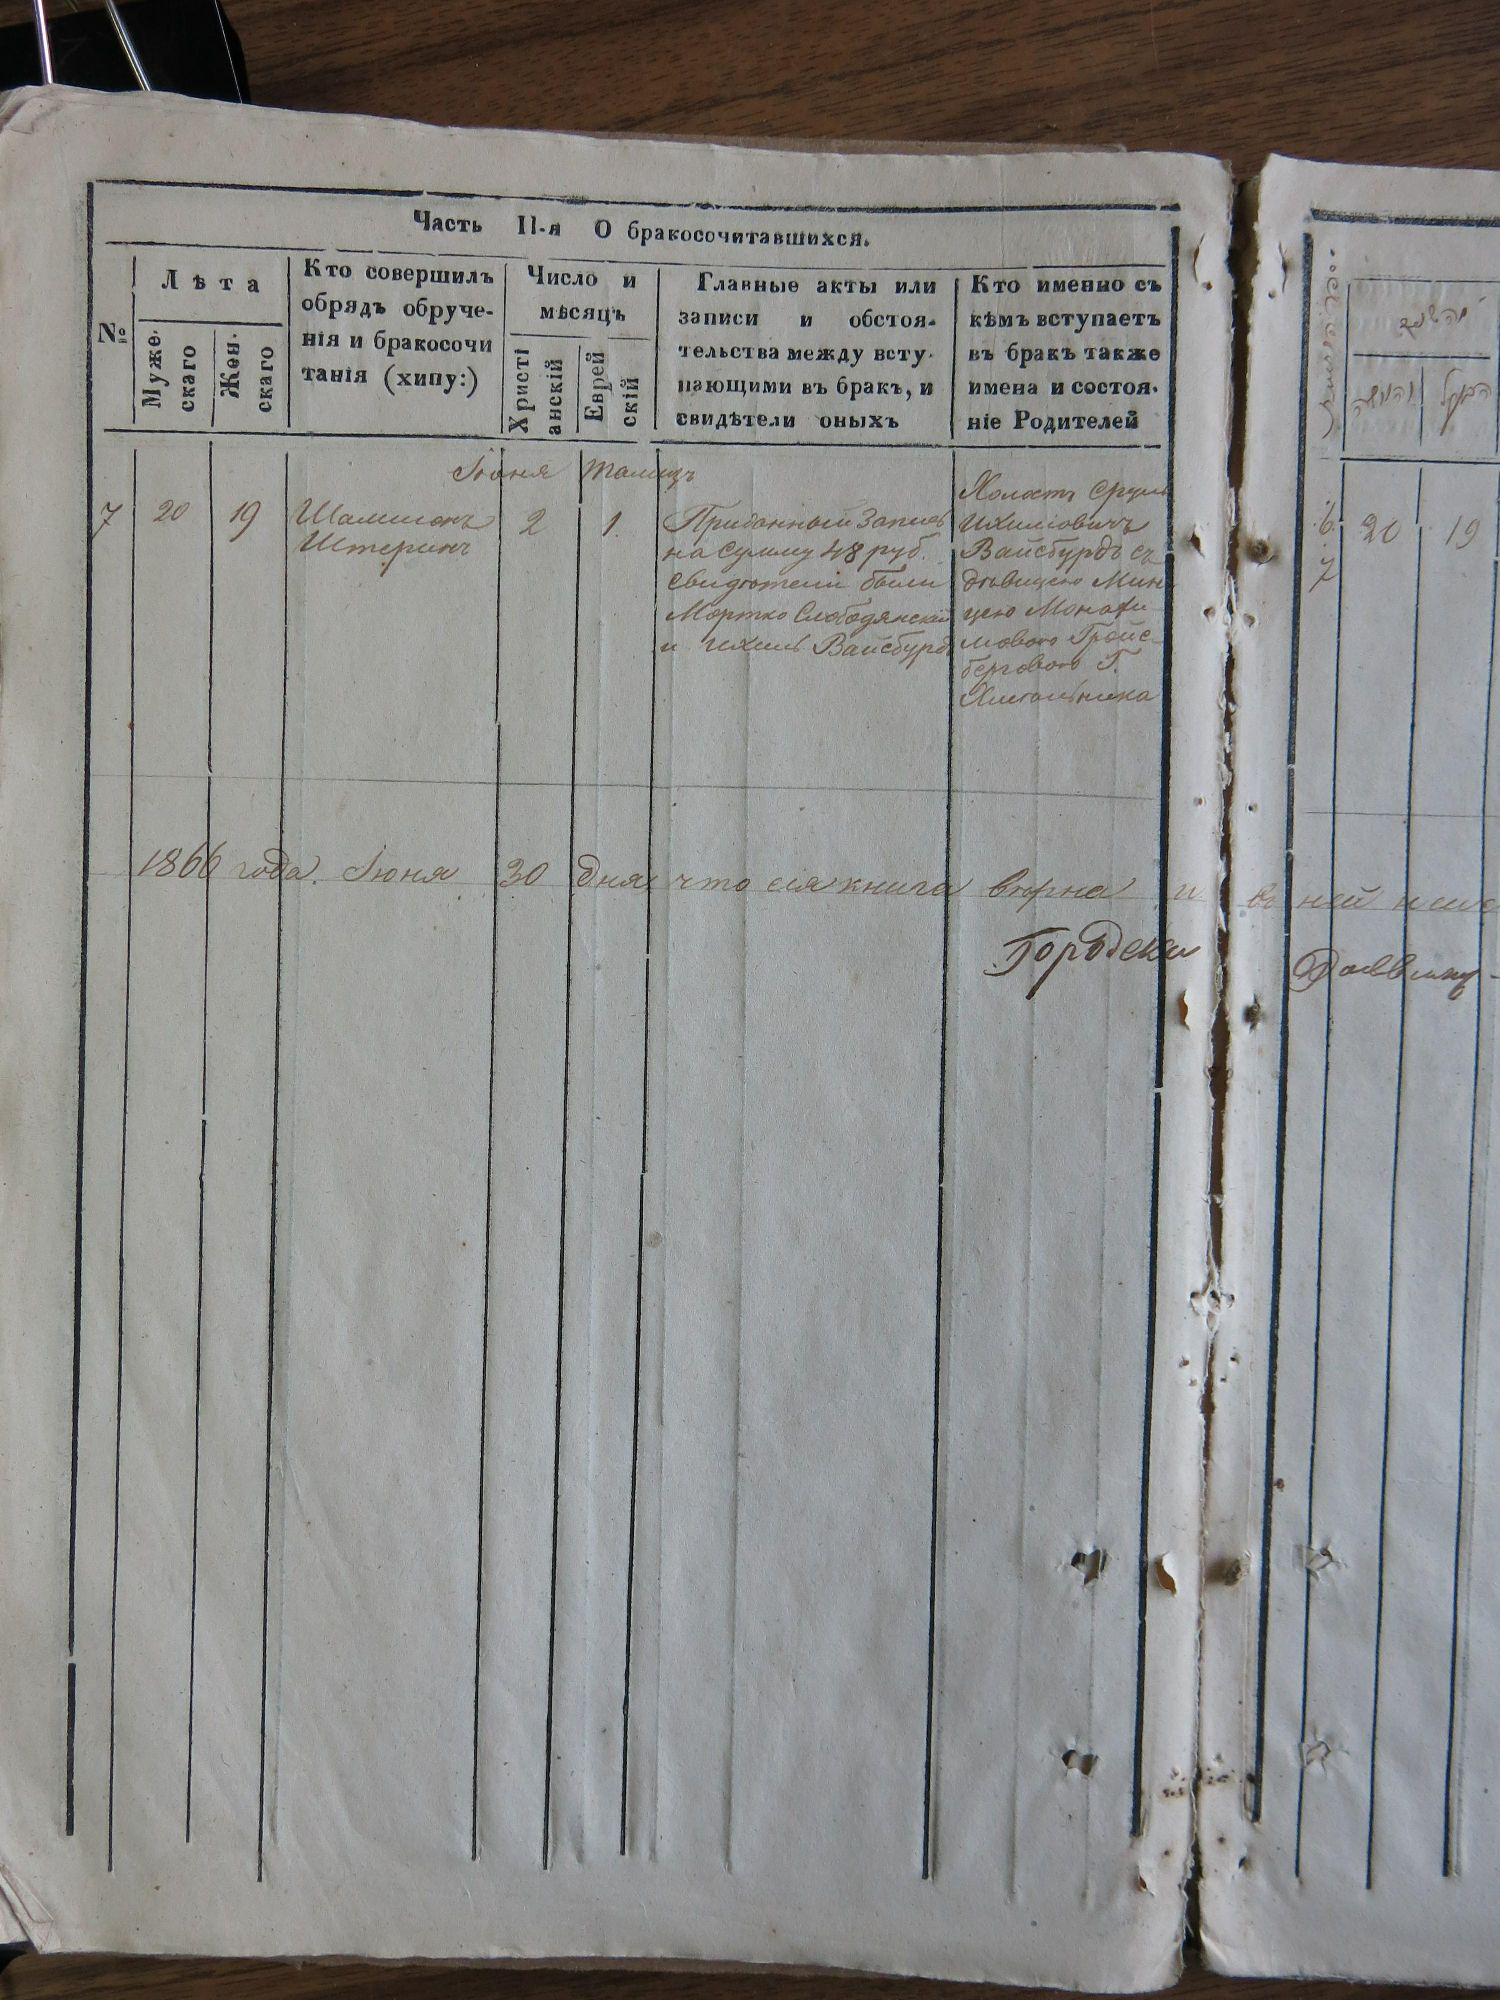 Часть II-я О бракосочитавшихся.
№
Лѣта
Муже-
скаго
Жен.
скаго
Кто совершилъ
обрядъ обруче-
нія и бракосочи
танія (хипу:)
Число и
мѣсяцъ
Христі
анскій
Еврей
скій
Главные акты или
записи и обстоя-
тельства между всту-
пающими въ бракъ, и
свидѣтели оныхъ
Кто именно съ
кѣмъ вступаетъ
въ бракъ также
имена и состоя-
ніе Родителей
Іюня
7 20 19
Шамшонъ
Штеринъ
2 1.
Приданный запись
на сумму 48 руб.
свидѣтели были
Мортко Слободянскій
и Ихиль Вайсбурд
Холостъ Сруль
Ихиліовичъ
Вайсбурдъ съ
дѣвицею Мин
цею
мовою Гройс-
берговою Г.
Хмельника
1866 года. Іюня 30 дня, что сія книга вѣрна и въ ней
6. 20 19
7